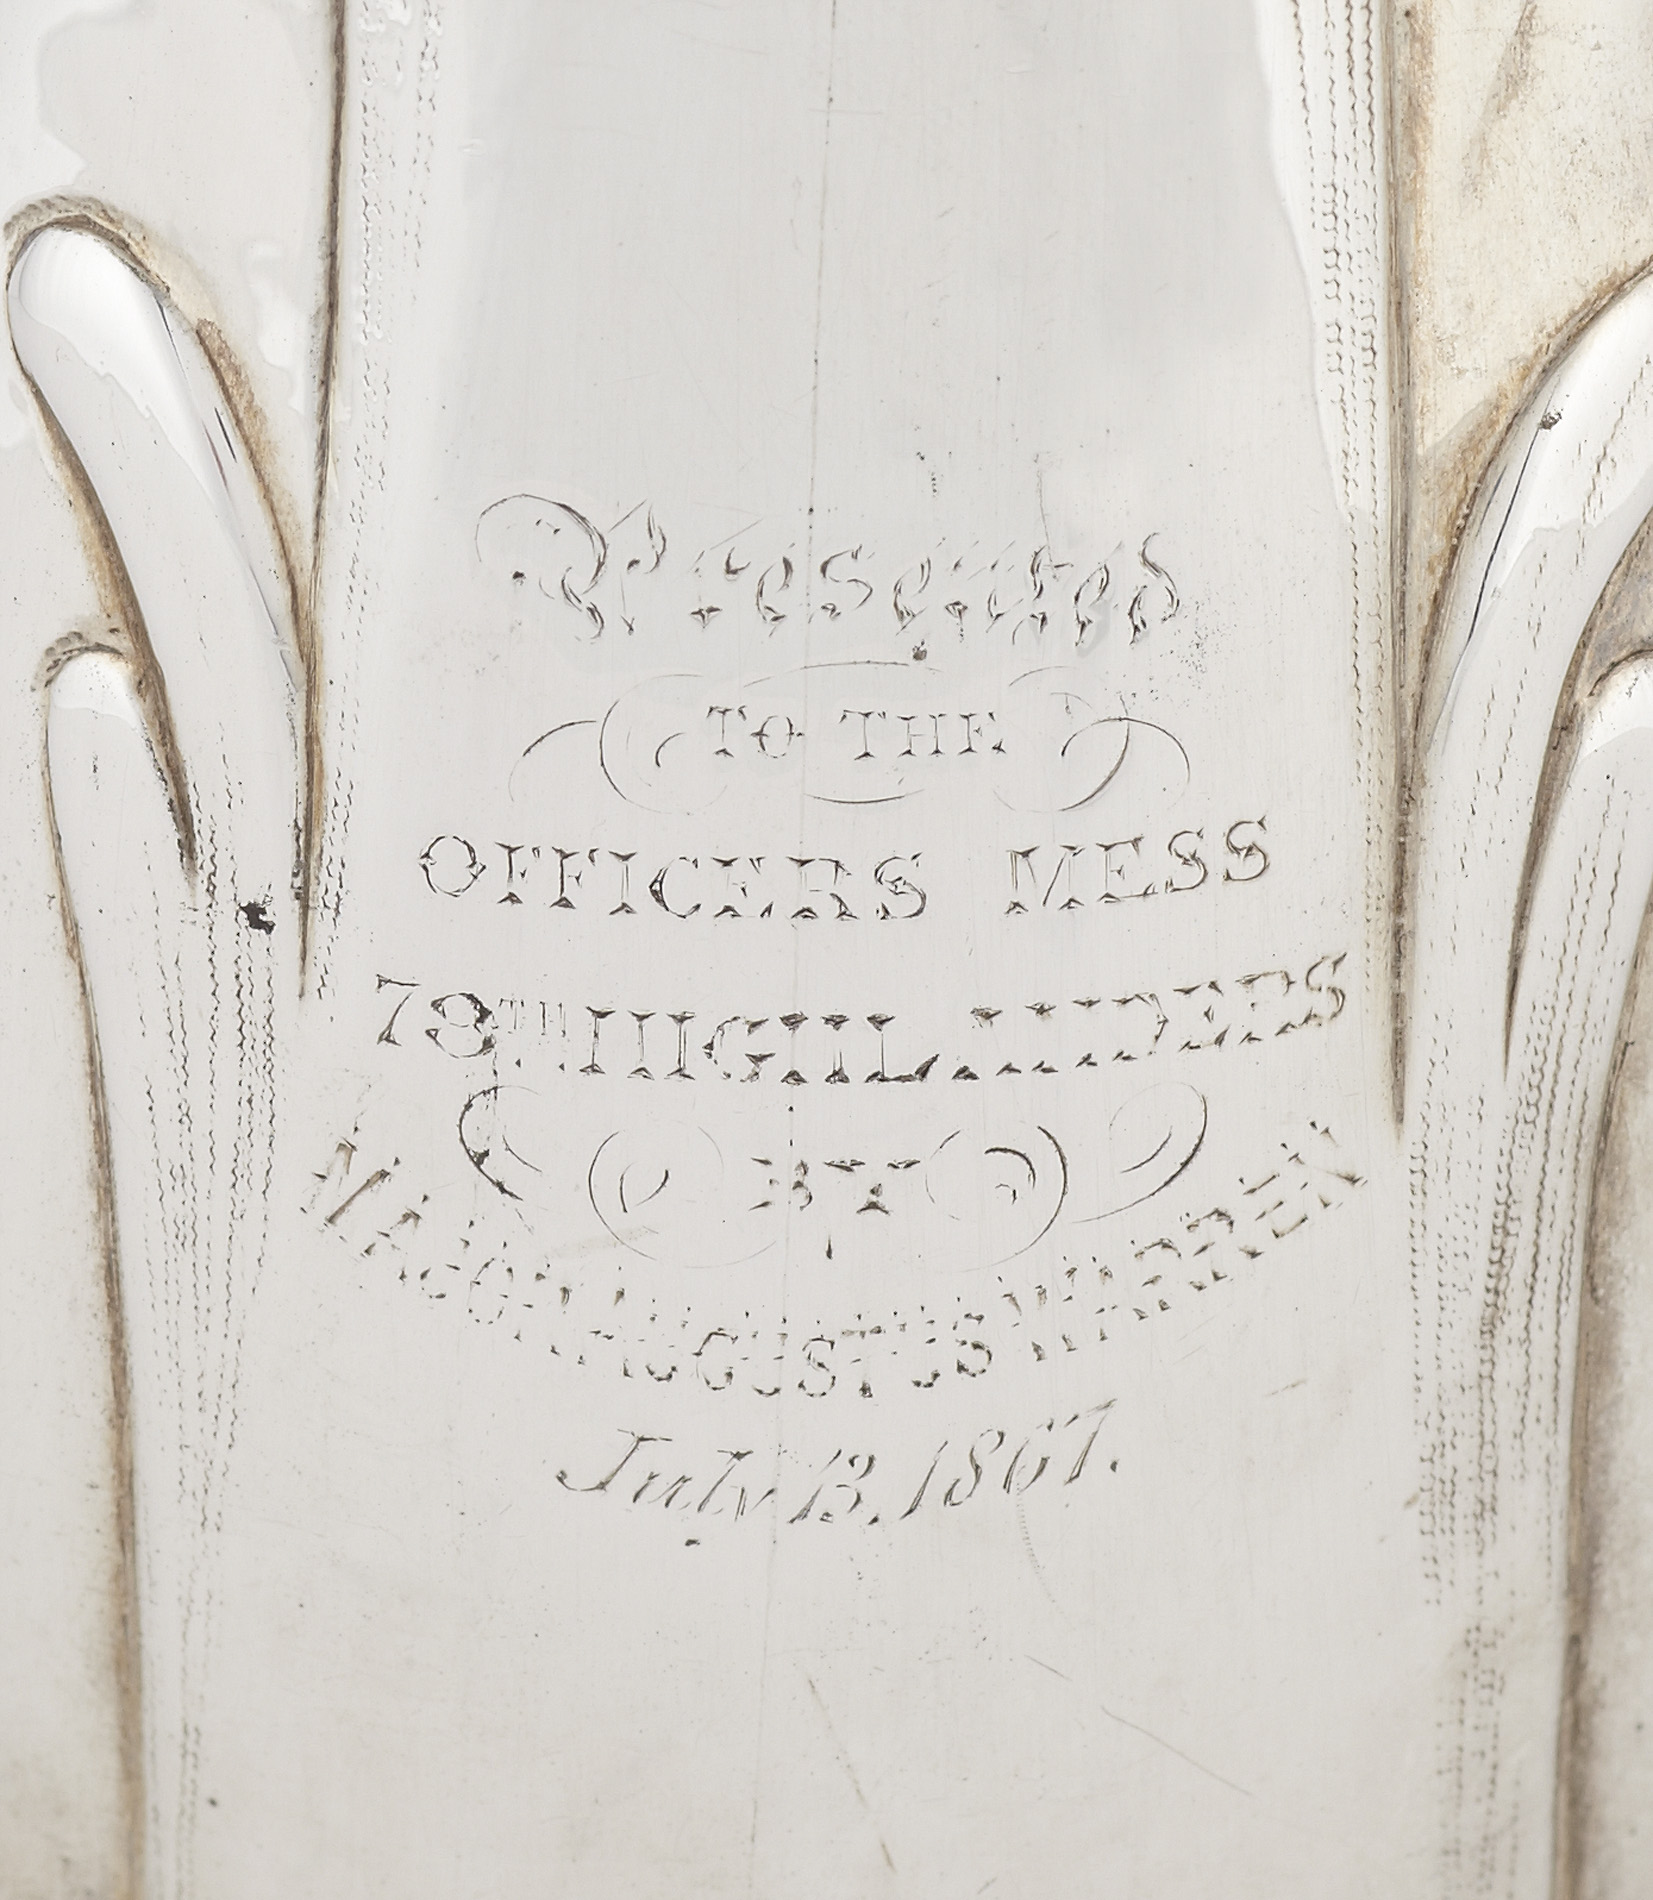 Presented
TO THE
OFFICERS MESS
79TH HIGHLANDERS
BY
MAJOR AUGUSTUS WARREN
July 13. 1867.